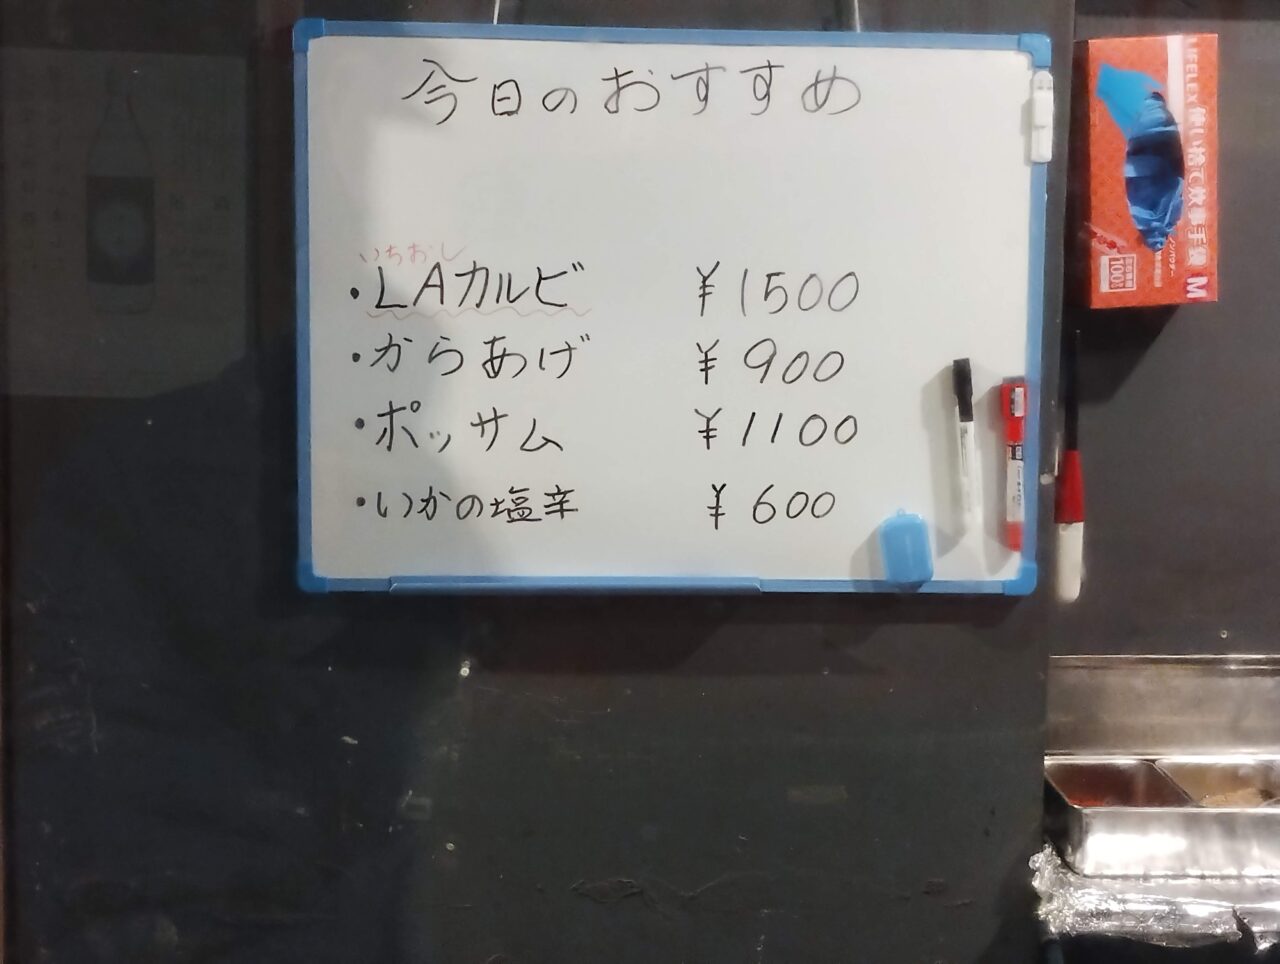 今日のおすすめ
いちおし
・LAカルビ ¥1500
・からあげ ¥900
・ポッサム ¥1100
・いかの塩辛 ¥600
LIFELEX 使い捨て炊事手袋 M
100